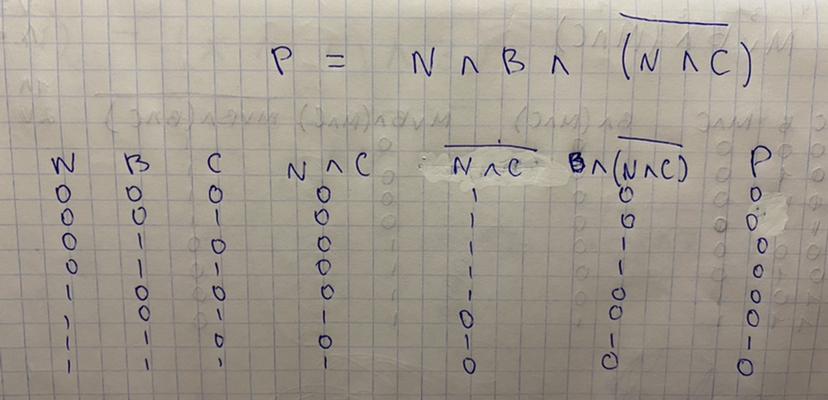 P = N ∧ B ∧ (N ∧ C)̅
N B C N ∧ C N̅ ̅∧̅ ̅C̅ B∧(N̅∧̅C̅) P
0 0 0 0 1 0 0
0 0 1 0 1 0 0
0 1 0 0 1 1 0
0 1 1 0 1 1 0
1 0 0 0 1 0 0
1 0 1 1 0 0 0
1 1 0 0 1 1 1
1 1 1 1 0 0 0